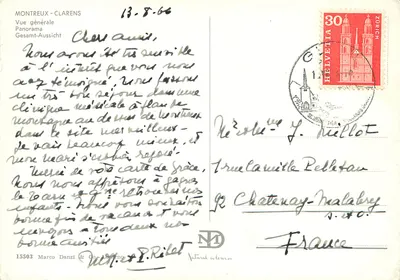 MONTREUX - CLARENS
Vue générale
Panorama
Gesamt-Aussicht
13.8.66
Chers amis,
Nous avons été très sensibles
à l'intérêt que vous nous
avez témoigné. Nous faisons
un très bon séjour dans une
clinique médicale à flanc de
montagne au dessus de Montreux
dans le site merveilleux.
Je vais beaucoup mieux, et
mon mari
Merci de votre carte de Grèce.
Nous nous apprêtons à gagner
retrouver nos
enfants. Nous vous souhaitons
bonne fin de vacances et vous
à tous deux nos
bonnes amitiés
30
HELVETIA
ZÜRICH
J. Rullot
1 rue Camille Pelletan
92 Chatenay-Malabry
France
13383 Marco Danzi